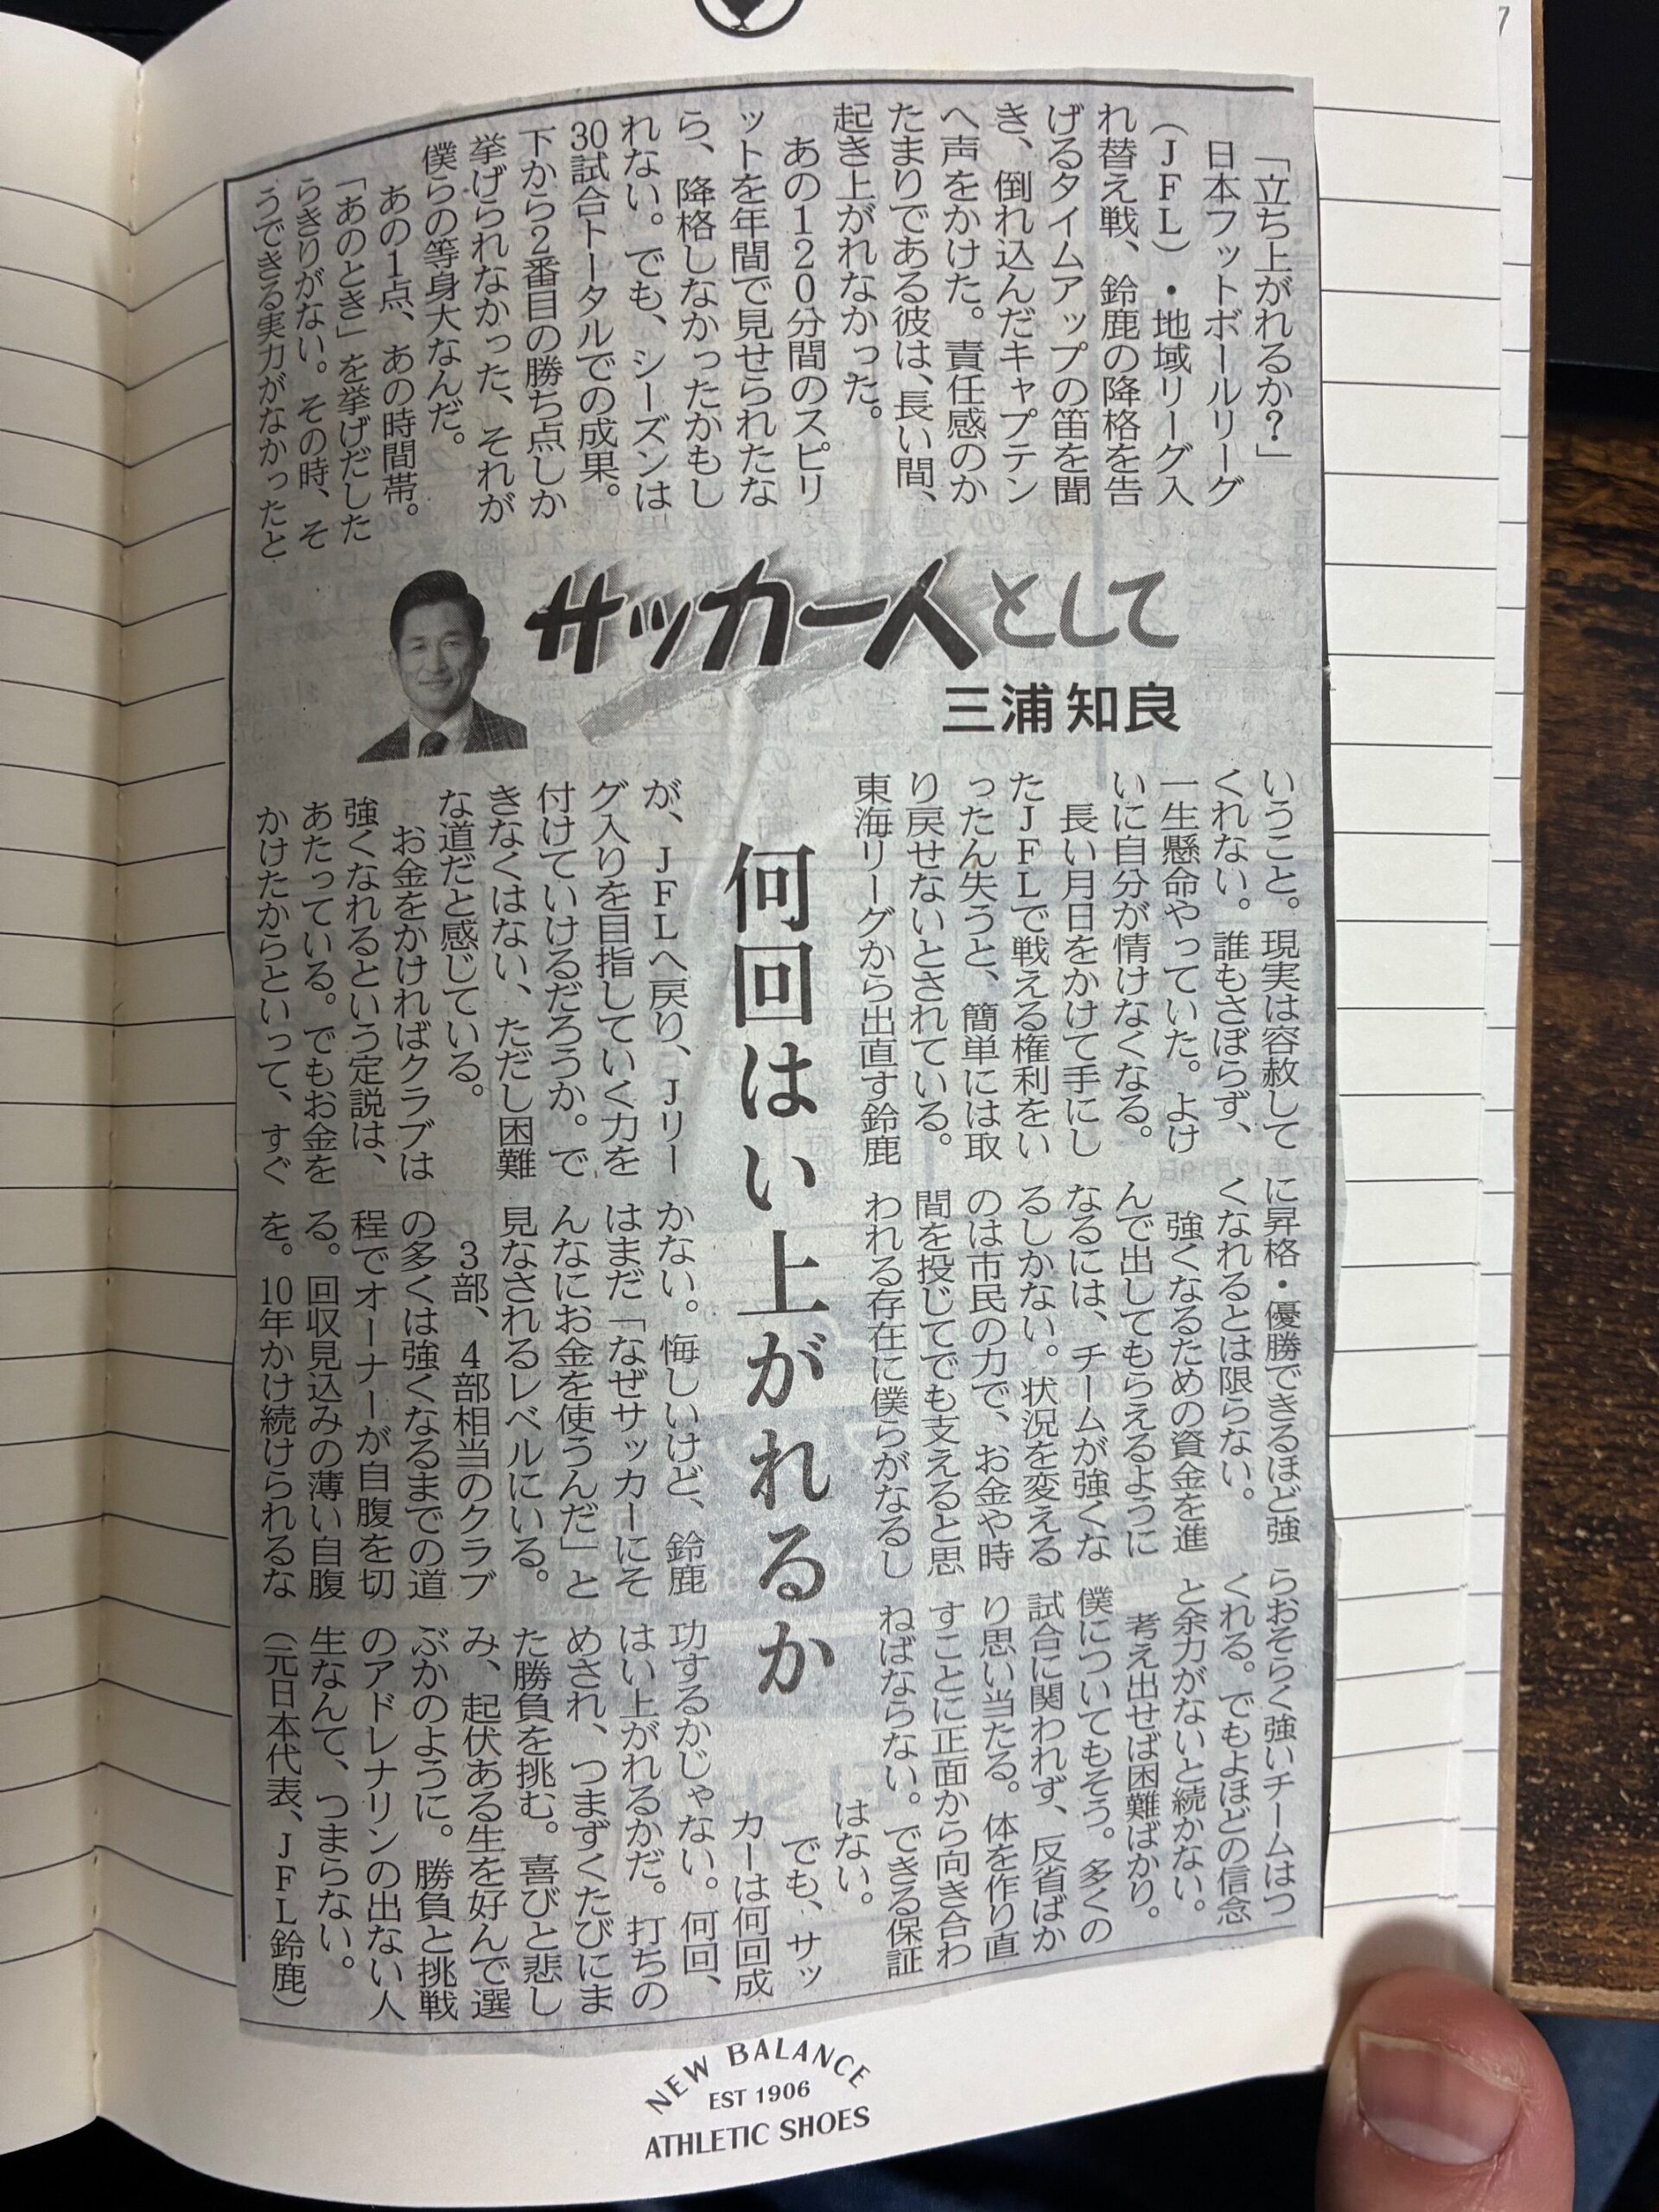 「立ち上がれるか?」
日本フットボールリーグ
(JFL)・地域リーグ入
れ替え戦、鈴鹿の降格を告
げるタイムアップの笛を聞
き、倒れ込んだキャプテン
へ声をかけた。責任感のか
たまりである彼は、長い間、
起き上がれなかった。
あの120分間のスピリ
ットを年間で見せられたな
ら、降格しなかったかもし
れない。でも、シーズンは
30試合トータルでの成果。
下から2番目の勝ち点しか
挙げられなかった、それが
僕らの等身大なんだ。
あの1点、あの時間帯。
「あのとき」を挙げだした
らきりがない。その時、そ
うできる実力がなかったと
サッカー人として
三浦知良
いうこと。現実は容赦して
くれない。誰もさぼらず、
一生懸命やっていた。よけ
いに自分が情けなくなる。
長い月日をかけて手にし
たJFLで戦える権利をい
ったん失うと、簡単には取
り戻せないとされている。
東海リーグから出直す鈴鹿
何回はい上がれるか
が、JFLへ戻り、Jリー
グ入りを目指していく力を
付けていけるだろうか。で
きなくはない、ただし困難
な道だと感じている。
お金をかければクラブは
強くなれるという定説は、
あたっている。でもお金を
かけたからといって、すぐ
に昇格・優勝できるほど強
くなれるとは限らない。
強くなるための資金を進
んで出してもらえるように
なるには、チームが強くな
るしかない。状況を変える
のは市民の力で、お金や時
間を投じてでも支えると思
われる存在に僕らがなるし
かない。悔しいけど、鈴鹿
はまだ「なぜサッカーにそ
んなにお金を使うんだ」と
見なされるレベルにいる。
3部、4部相当のクラブ
の多くは強くなるまでの道
程でオーナーが自腹を切
る。回収見込みの薄い自腹
を。10年かけ続けられるな
らおそらく強いチームはつ
くれる。でもよほどの信念
と余力がないと続かない。
考え出せば困難ばかり。
僕についてもそう。多くの
試合に関われず、反省ばか
り思い当たる。体を作り直
すことに正面から向き合わ
ねばならない。できる保証
はない。
でも、サッ
カーは何回成
功するかじゃない。何回、
はい上がれるかだ。打ちの
めされ、つまずくたびにま
た勝負を挑む。喜びと悲し
み、起伏ある生を好んで選
ぶかのように。勝負と挑戦
のアドレナリンの出ない人
生なんて、つまらない。
(元日本代表、JFL鈴鹿)
NEW BALANCE
EST 1906
ATHLETIC SHOES
7